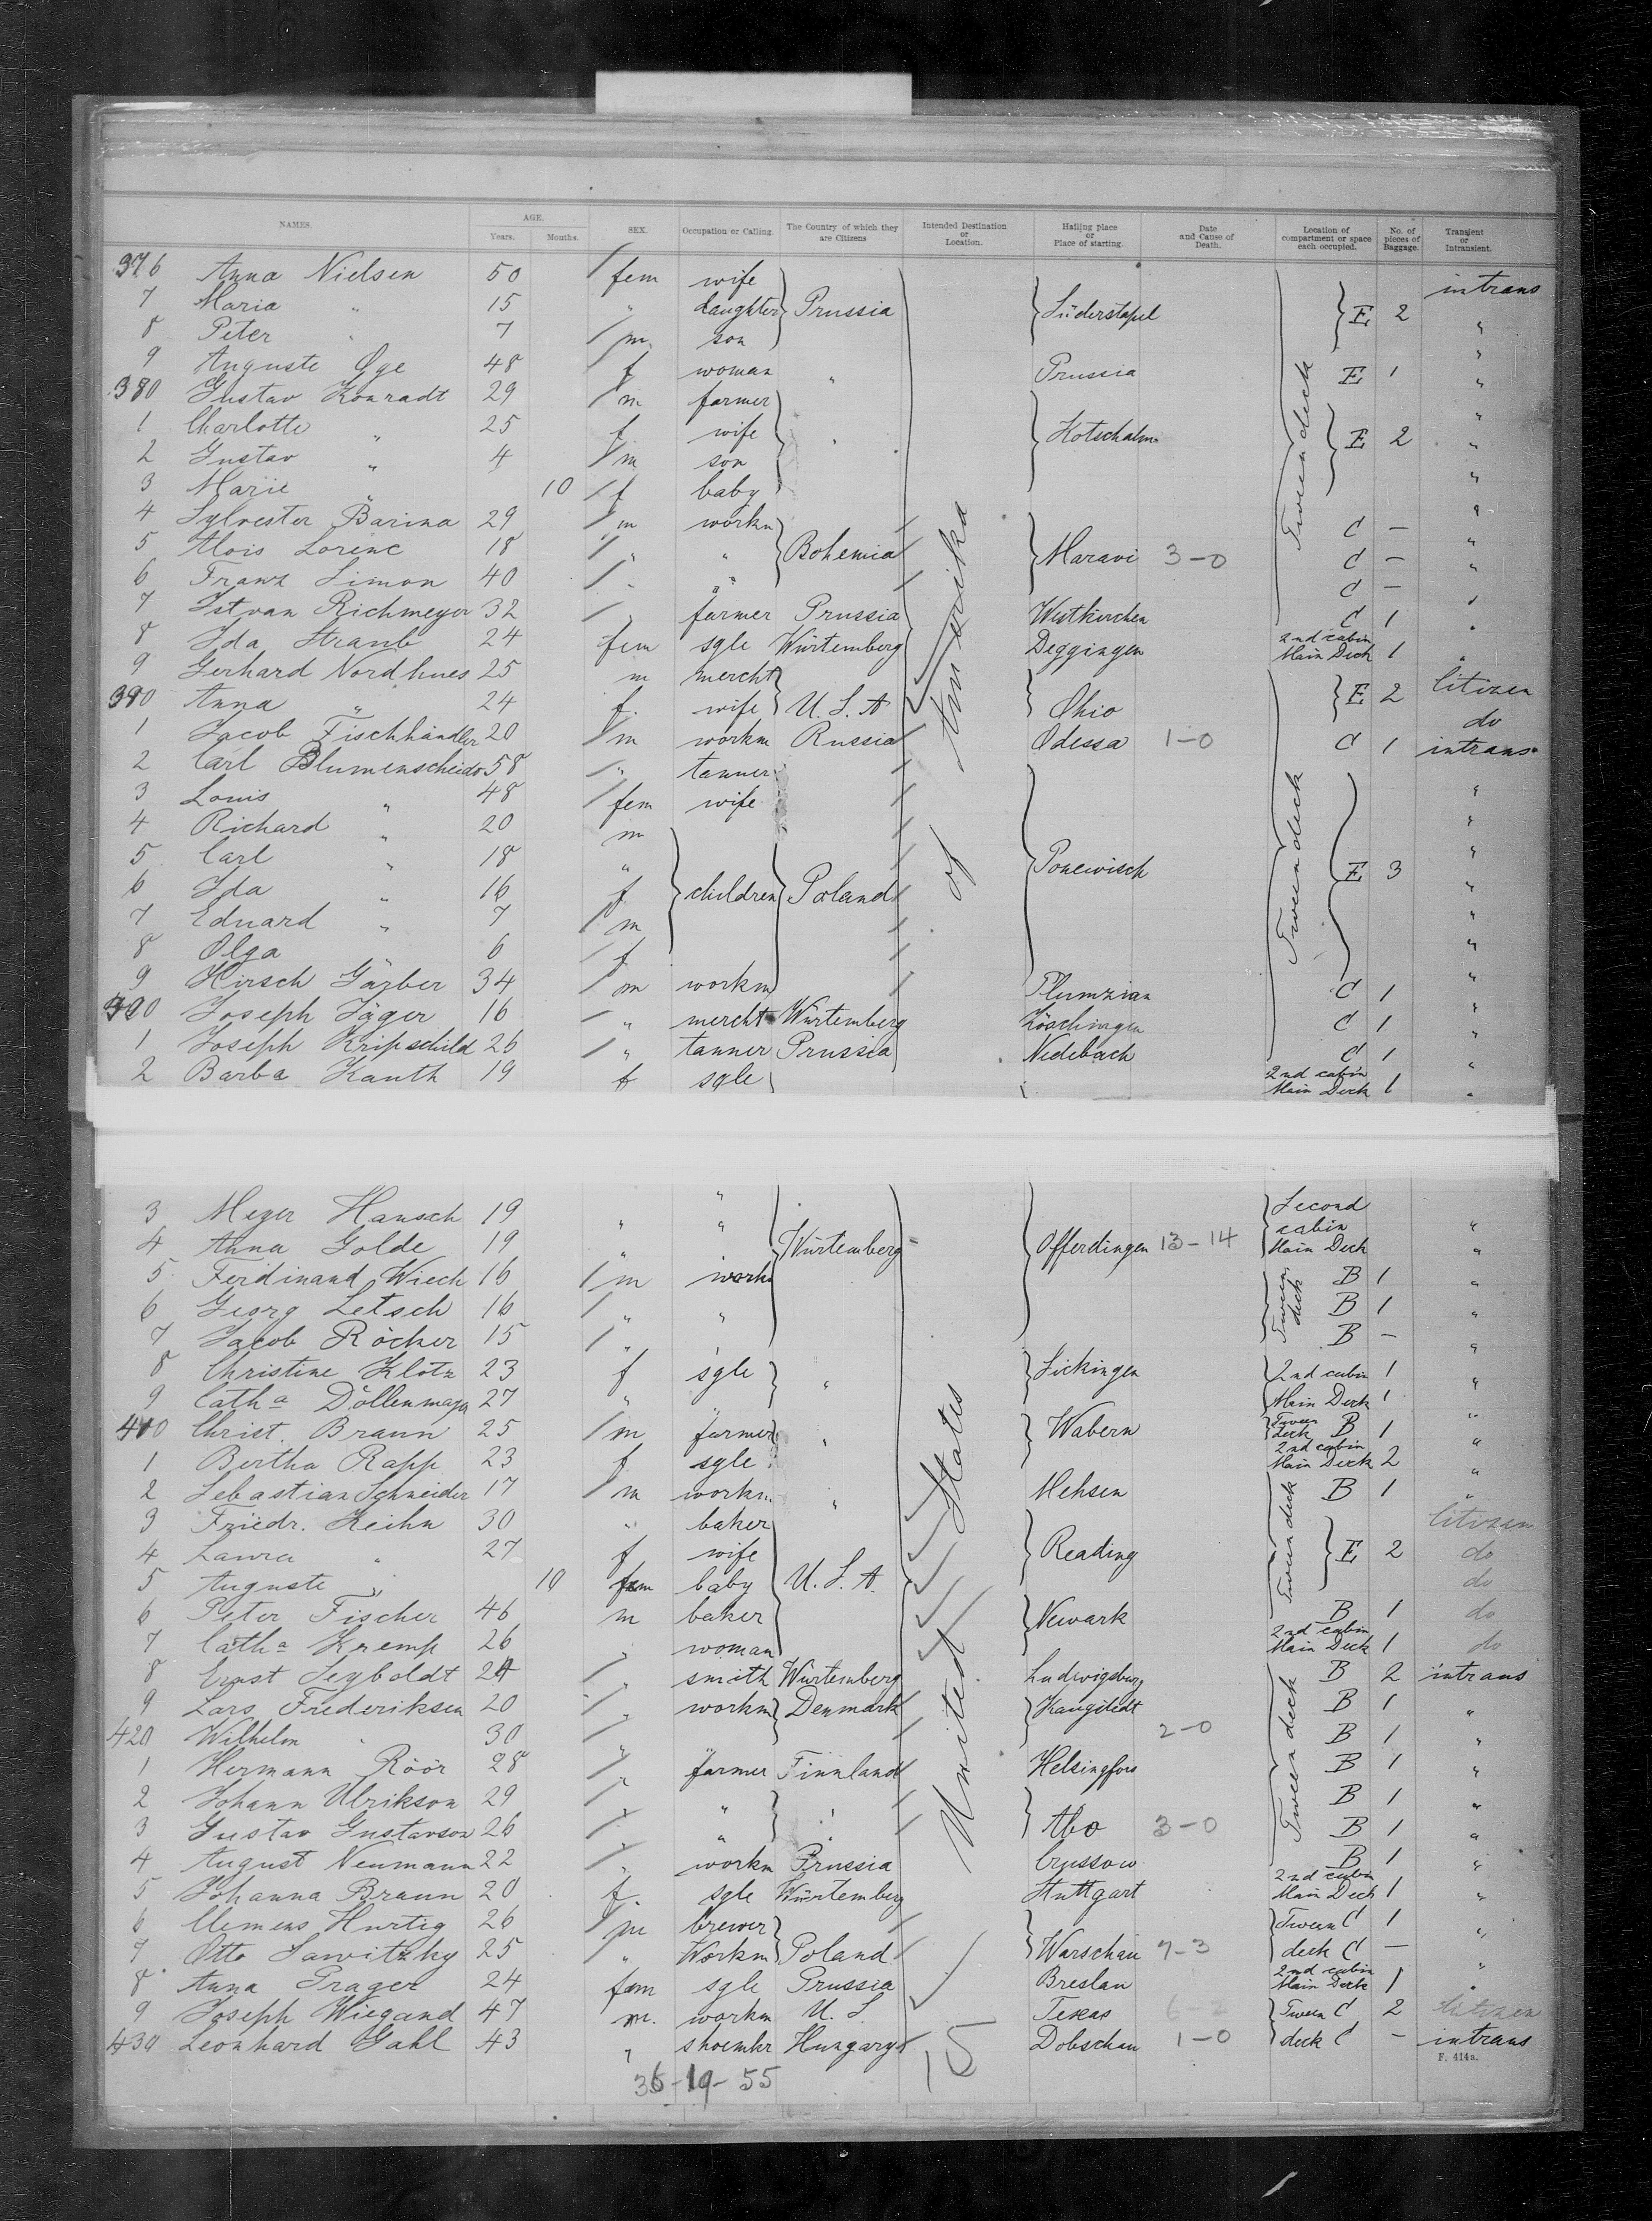 NAMES. AGE. Years. Months. SEX. Occupation or Calling. The Country of which they are Citizens Intended Destination or Location. Hailing place or Place of starting. Date and Cause of Death. Location of compartment or space each occupied. No. of pieces of Baggage. Transient or Intransient.
376 Anna Nielsen 50 fem wife intrans
7 Maria " 15 " daughter Prussia Süderstapel E 2 "
8 Peter " 7 m son "
9 Auguste Oge 48 f woman " Prussia E 1 "
380 Gustav Konradt 29 m farmer "
1 Charlotte " 25 f wife " E 2 "
2 Gustav " 4 m son "
3 Marie " 10 f baby "
4 Sylvester Barina 29 m workm C — "
5 Alois Lorenc 18 " " Bohemia Maravi 3-0 C — "
6 Franz Simon 40 " " C — "
7 Istvan Richmeyer 32 " farmer Prussia C 1 "
8 Ida Straub 24 fem sgle Würtemberg Deggingen 2nd cabin Main Deck 1 "
9 Gerhard Nordhues 25 m mercht Citizen
390 Anna " 24 f. wife U. S. A Ohio E 2 do
1 Jacob Fischhändler 20 m workm Russia Odessa 1-0 C 1 intrans
2 Carl Blumenscheidt 58 " tanner "
3 Louis " 48 fem wife "
4 Richard " 20 m "
5 Carl " 18 " Ponewisch "
6 Ida " 16 f children Poland E 3 "
7 Eduard " 7 m "
8 Olga " 6 f "
9 Hirsch Gärber 34 m workm Plumzian C 1 "
400 Joseph Jäger 16 " mercht Würtemberg Zöschingen C 1 "
1 Joseph Kripschild 26 " tanner Prussia Nedebach C 1 "
2 Barba Kauth 19 f sgle 2nd cabin Main Deck 1 "
3 Meyer Hansch 19 " " Second cabin "
4 Anna Golde 19 " " Würtemberg Offerdingen 13-14 Main Deck "
5 Ferdinand Wiech 16 m workm B 1 "
6 Georg Letsch 16 " " B 1 "
7 Jacob Röcker 15 " " B — "
8 Christine Klotz 23 f sgle " Sickingen 2nd cabin 1 "
9 Catha Döllenmayer 27 " Main Deck 1 "
410 Christ. Braun 25 m farmer " Wabern Tween deck B 1 "
1 Bertha Rapp 23 f sgle 2nd cabin Main Deck 2 "
2 Sebastian Schneider 17 m workm " Mehsen B 1 "
3 Friedr. Keihn 30 " baker Citizen
4 Laura " 27 f wife Reading E 2 do
5 Auguste " 10 fem baby U. S. A. do
6 Peter Fischer 46 m baker Newark B 1 do
7 Catha Kremp 26 " woman 2nd cabin Main Deck 1 do
8 Ernst Seyboldt 24 " smith Würtemberg Ludwigsburg B 2 intrans
9 Lars Frederiksen 20 " workm Denmark B 1 "
420 Wilhelm " 30 " 2-0 B 1 "
1 Hermann Röör 28 " farmer Finnland Helsingfors B 1 "
2 Johann Ulrikson 29 " " " B 1 "
3 Gustav Gustavson 26 " " Abo 3-0 B 1 "
4 August Neumann 22 " workm Prussia Crussow B 1 "
5 Johanna Braun 20 f. sgle Würtemberg Stuttgart 2nd cabin Main Deck 1 "
6 Clemens Hurtig 26 m brewer Tween C 1 "
7 Otto Sawitzky 25 " Workm Poland Warschau 7-3 deck C — "
8 Anna Prager 24 fem sgle Prussia Breslau 2nd cabin Main Deck 1 "
9 Joseph Wiegand 47 m. workm U. S. Texas 6-2 Tween C 2 Citizen
430 Leonhard Gahl 43 " shoemkr Hungary Dobschau 1-0 deck C — intrans
United States of Amerika
Tween deck
Tween deck
Tween deck
Tween deck
Tween deck
15
36-19-55
F. 414a.